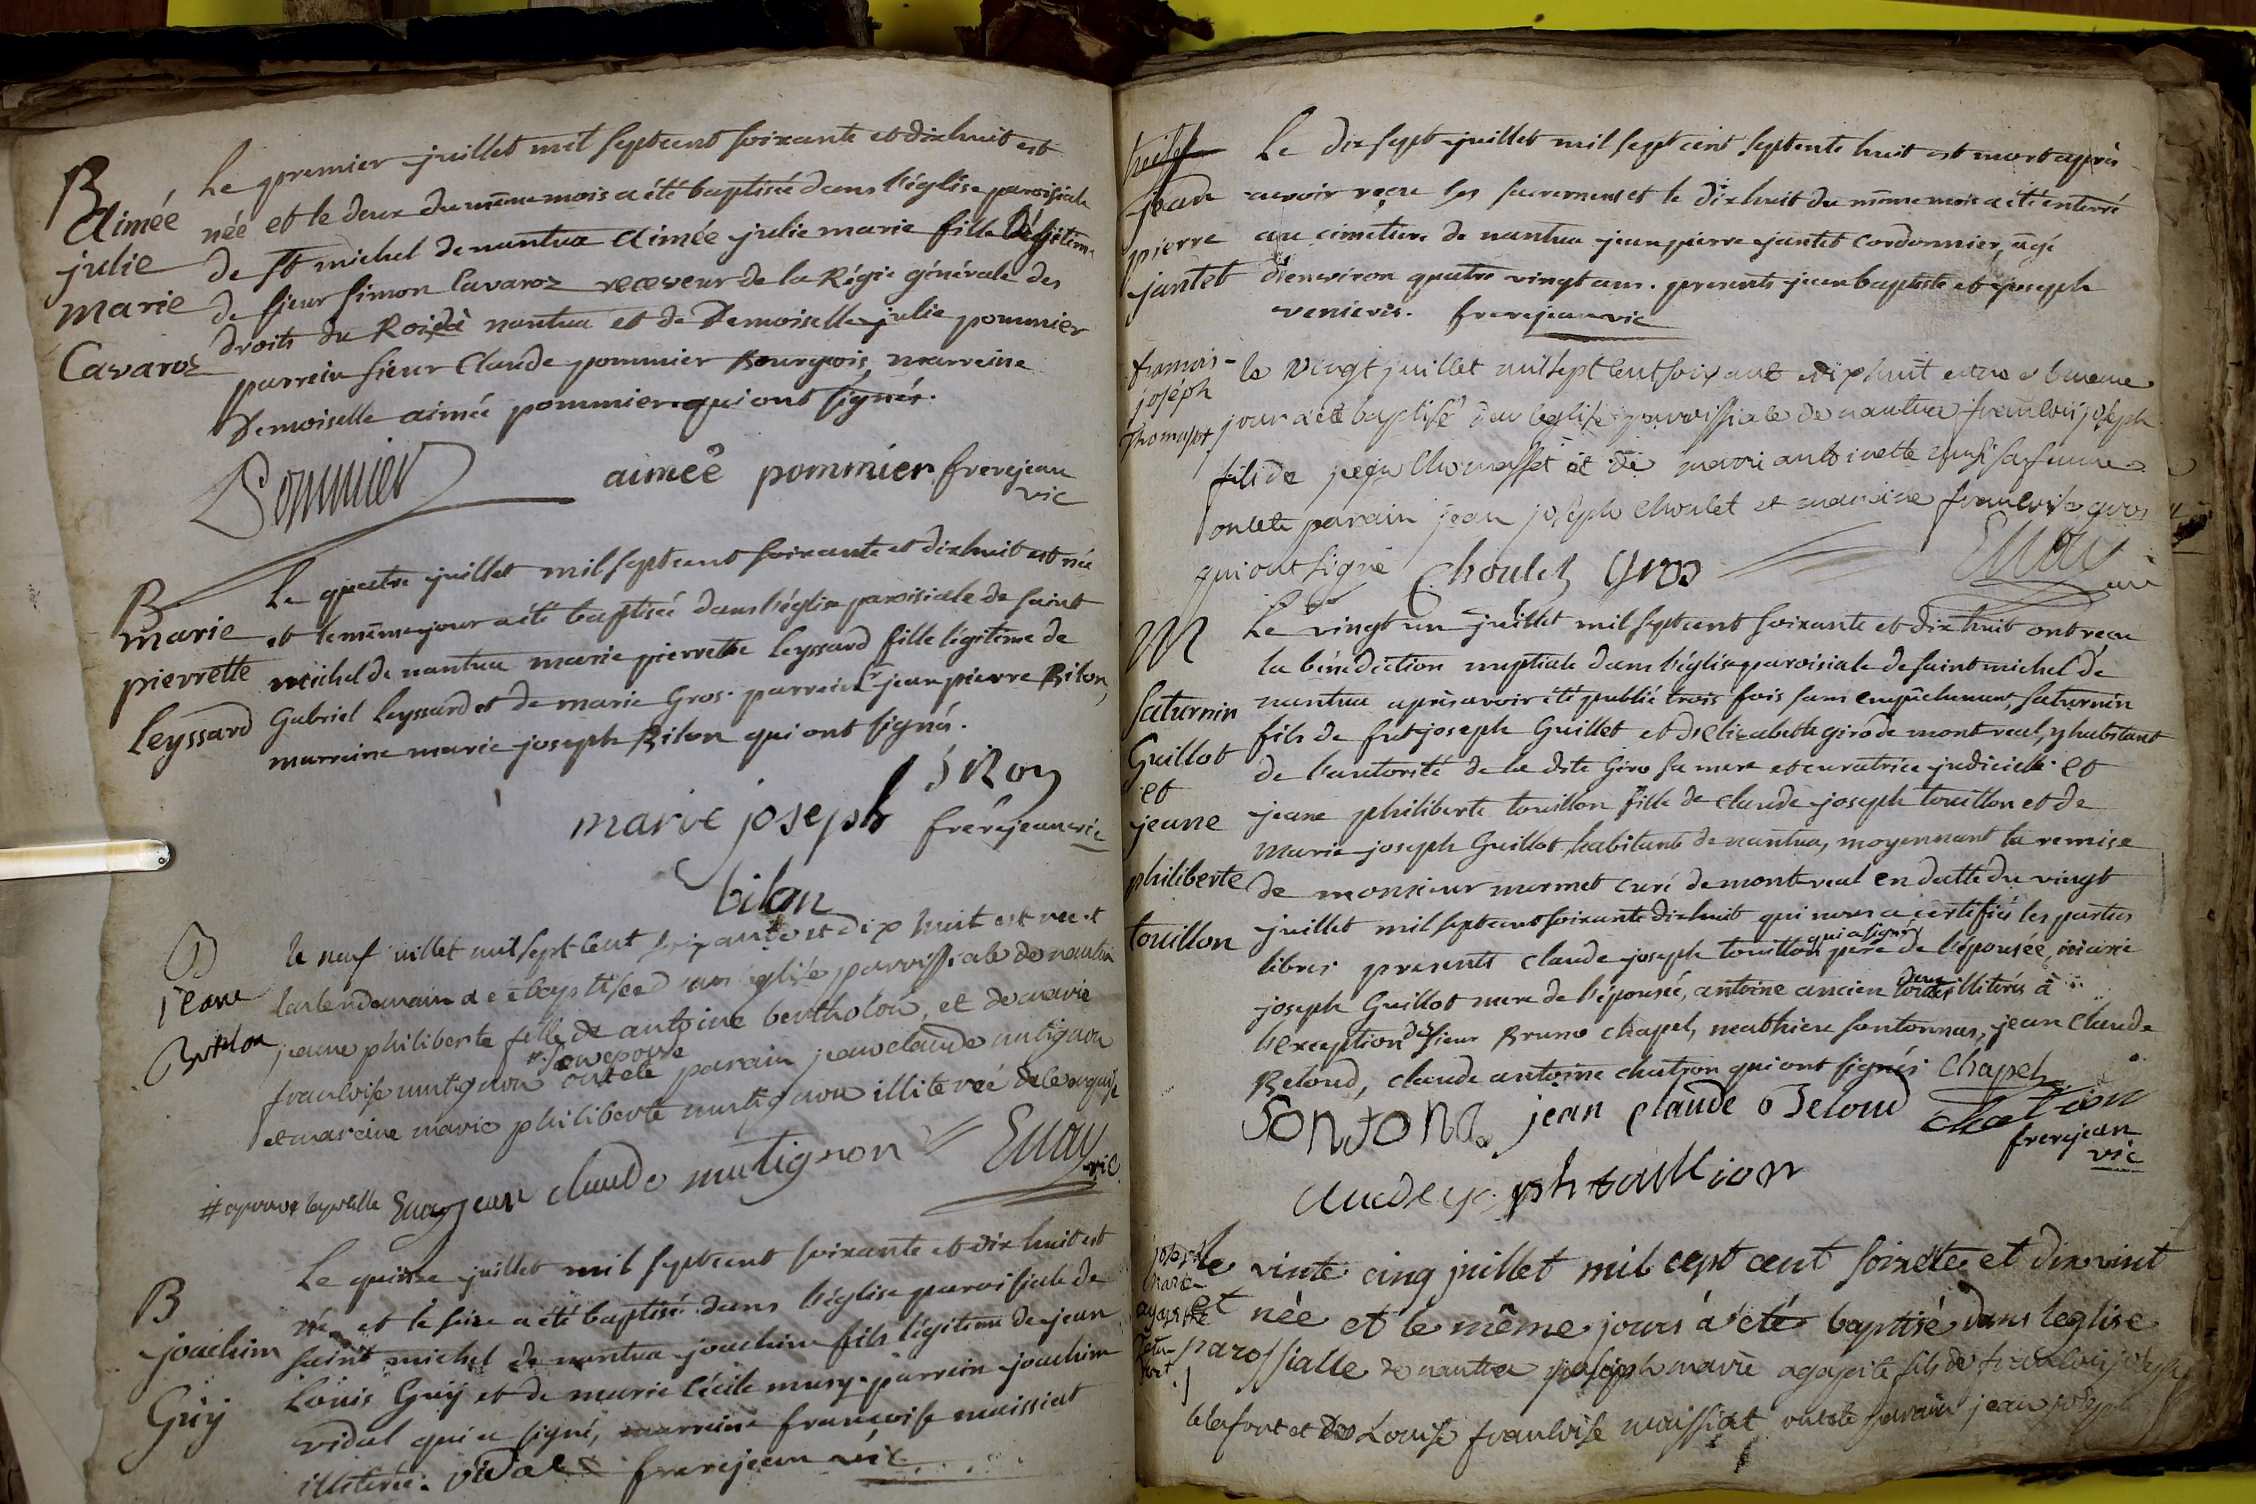 B
Aimée
julie
marie
Cavaroz
Le premier juillet mil septcent soixante et dixhuit est
née et le deux du même mois a été baptisée dans l'église paroisiale
de St michel de nantua Aimée julie marie fille légitime
de sieur simon Cavaroz receveur de la Régie générale des
droits du Roi à nantua et de Demoiselle julie pommier
parrein sieur Claude pommier Bourgois, marreine
Demoiselle aimée pommier qui ont signés.
Pommier
aimeê pommier frerejean
vic
B
marie
pierrette
Leyssard
Le quatre juillet mil septcent soixante et dixhuit est née
et le même jour a été baptisée dans l'église paroisiale de saint
michel de nantua marie pierrette Leyssard fille légitime de
Gabriel Leyssard et de marie Gros. parrein Sr jean pierre Bilon,
marreine marie joseph Bilon qui ont signés.
marie joseph
frerejean vic
bilon
B
jeane
le neuf juillet mil sept cent soixante et dix huit est née et
le lendemain a été baptisée dans l'église parroissiale de nantua
jeanne philiberte fille de antoine bertholon, et de marie
francoise mutignon # son epouse ont été parain jean claude mutignon
et maraine marie philiberte mutignon illiterée de ce enquise
# aprouvé Emay jean claude mutignon Emay vic
B
joachim
Guÿ
Le quinze juillet mil septcent soixante et dix huit est
né, et le seize a été baptisé dans l'église paroisiale de
saint michel de nantua joachim fils légitime de jean
Louis Guÿ et de marie Cécile musy. parrein joachim
vidal qui a signé, marreine francoise maissiat
illitérée. vidal frerejean vic
jean
pierre
jantet
Le dix sept juillet mil sept cent septente huit est mort après
avoir reçu les sacremens et le dixhuit du même mois a été enterré
au cimetière de nantua jean pierre jantet Cordonnier, agé
d'environ quatre vingt ans. presents jean baptiste et joseph
frerejean vic
francois
joséph
Thomasset
le vingt juillet mil sept cent soixante et dix huit est né et le meme
jour a été baptisé dans l'eglise parroissiale de nantua francois joseph
fils de Thomasset et de marie antoinette sa femme
ont été parain jean joseph Choulet et maraine francoise gros
qui ont signé Choulet Gros Emay
vic
M
Saturnin
Guillot
et
jeane
philiberte
touillon
Le vingt un juillet mil septcent soixante et dix huit ont reçu
la bénédiction nuptiale dans l'église paroisiale de saint michel de
nantua après avoir été publié trois fois sans empêchement, saturnin
fils de fut joseph Guillet et d'elizabeth giro de montreal, y habitant
de l'autorité de la dite Giro sa mere et curatrice judicielle et
jeane philiberte touillon fille de claude joseph touillon et de
Marie joseph Guillot, habitants de nantua, moyennant la remise
de monsieur mermet curé de montreal en datte du vingt
juillet mil septcent soixante dixhuit qui nous a certifiés les parties
libres presents claude joseph touillon qui a signé père de l'épousée, marie
joseph Guillot mere de l'épousée, antoine ancien illitérés à
l'exception des sieur Bruno chapel, mathieu fontonnas, jean claude
Beloud, claude antoine chatron qui ont signés Chapel
jean claude Beloud chatron
frerejean
vic
le vinte cinq juillet mil cept cent soixcte et dix vuit
et née et le même jours a été baptisé dans leglise
parossialle de nantua joseph marie agapite fils de francois joseph
et de Louise francoise maissiat ont été parain jean joseph